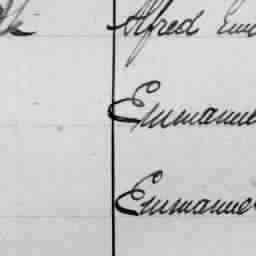 Alfred Em
Emmanue
Emmanue